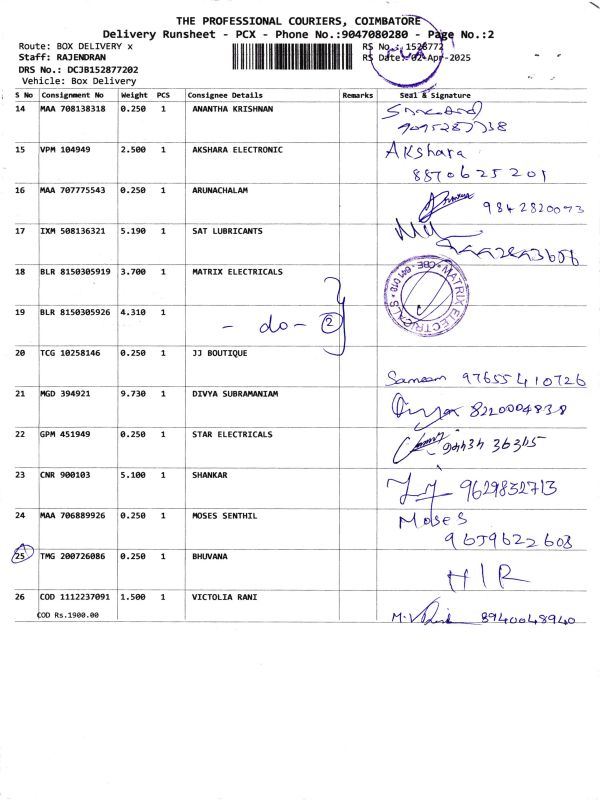 THE PROFESSIONAL COURIERS, COIMBATORE
Delivery Runsheet - PCX - Phone No.:9047080280 - Page No.:2
Route: BOX DELIVERY x RS No.: 1528772
Staff: RAJENDRAN RS Date: 02-Apr-2025
DRS No.: DCJB152877202
Vehicle: Box Delivery
S No Consignment No Weight PCS Consignee Details Remarks Seal & Signature
14 MAA 708138318 0.250 1 ANANTHA KRISHNAN
15 VPM 104949 2.500 1 AKSHARA ELECTRONIC Akshara
8870625201
16 MAA 707775543 0.250 1 ARUNACHALAM 9842820073
17 IXM 508136321 5.190 1 SAT LUBRICANTS
18 BLR 8150305919 3.700 1 MATRIX ELECTRICALS MATRIX ELECTRICALS CBE - 641 018
19 BLR 8150305926 4.310 1 - do - 2
20 TCG 10258146 0.250 1 JJ BOUTIQUE
97655410726
21 MGD 394921 9.730 1 DIVYA SUBRAMANIAM 8220004838
22 GPM 451949 0.250 1 STAR ELECTRICALS
23 CNR 900103 5.100 1 SHANKAR 9629832713
24 MAA 706889926 0.250 1 MOSES SENTHIL Moses
9659622603
25 TMG 200726086 0.250 1 BHUVANA H/R
26 COD 1112237091 1.500 1 VICTOLIA RANI
COD Rs.1900.00 8940048940